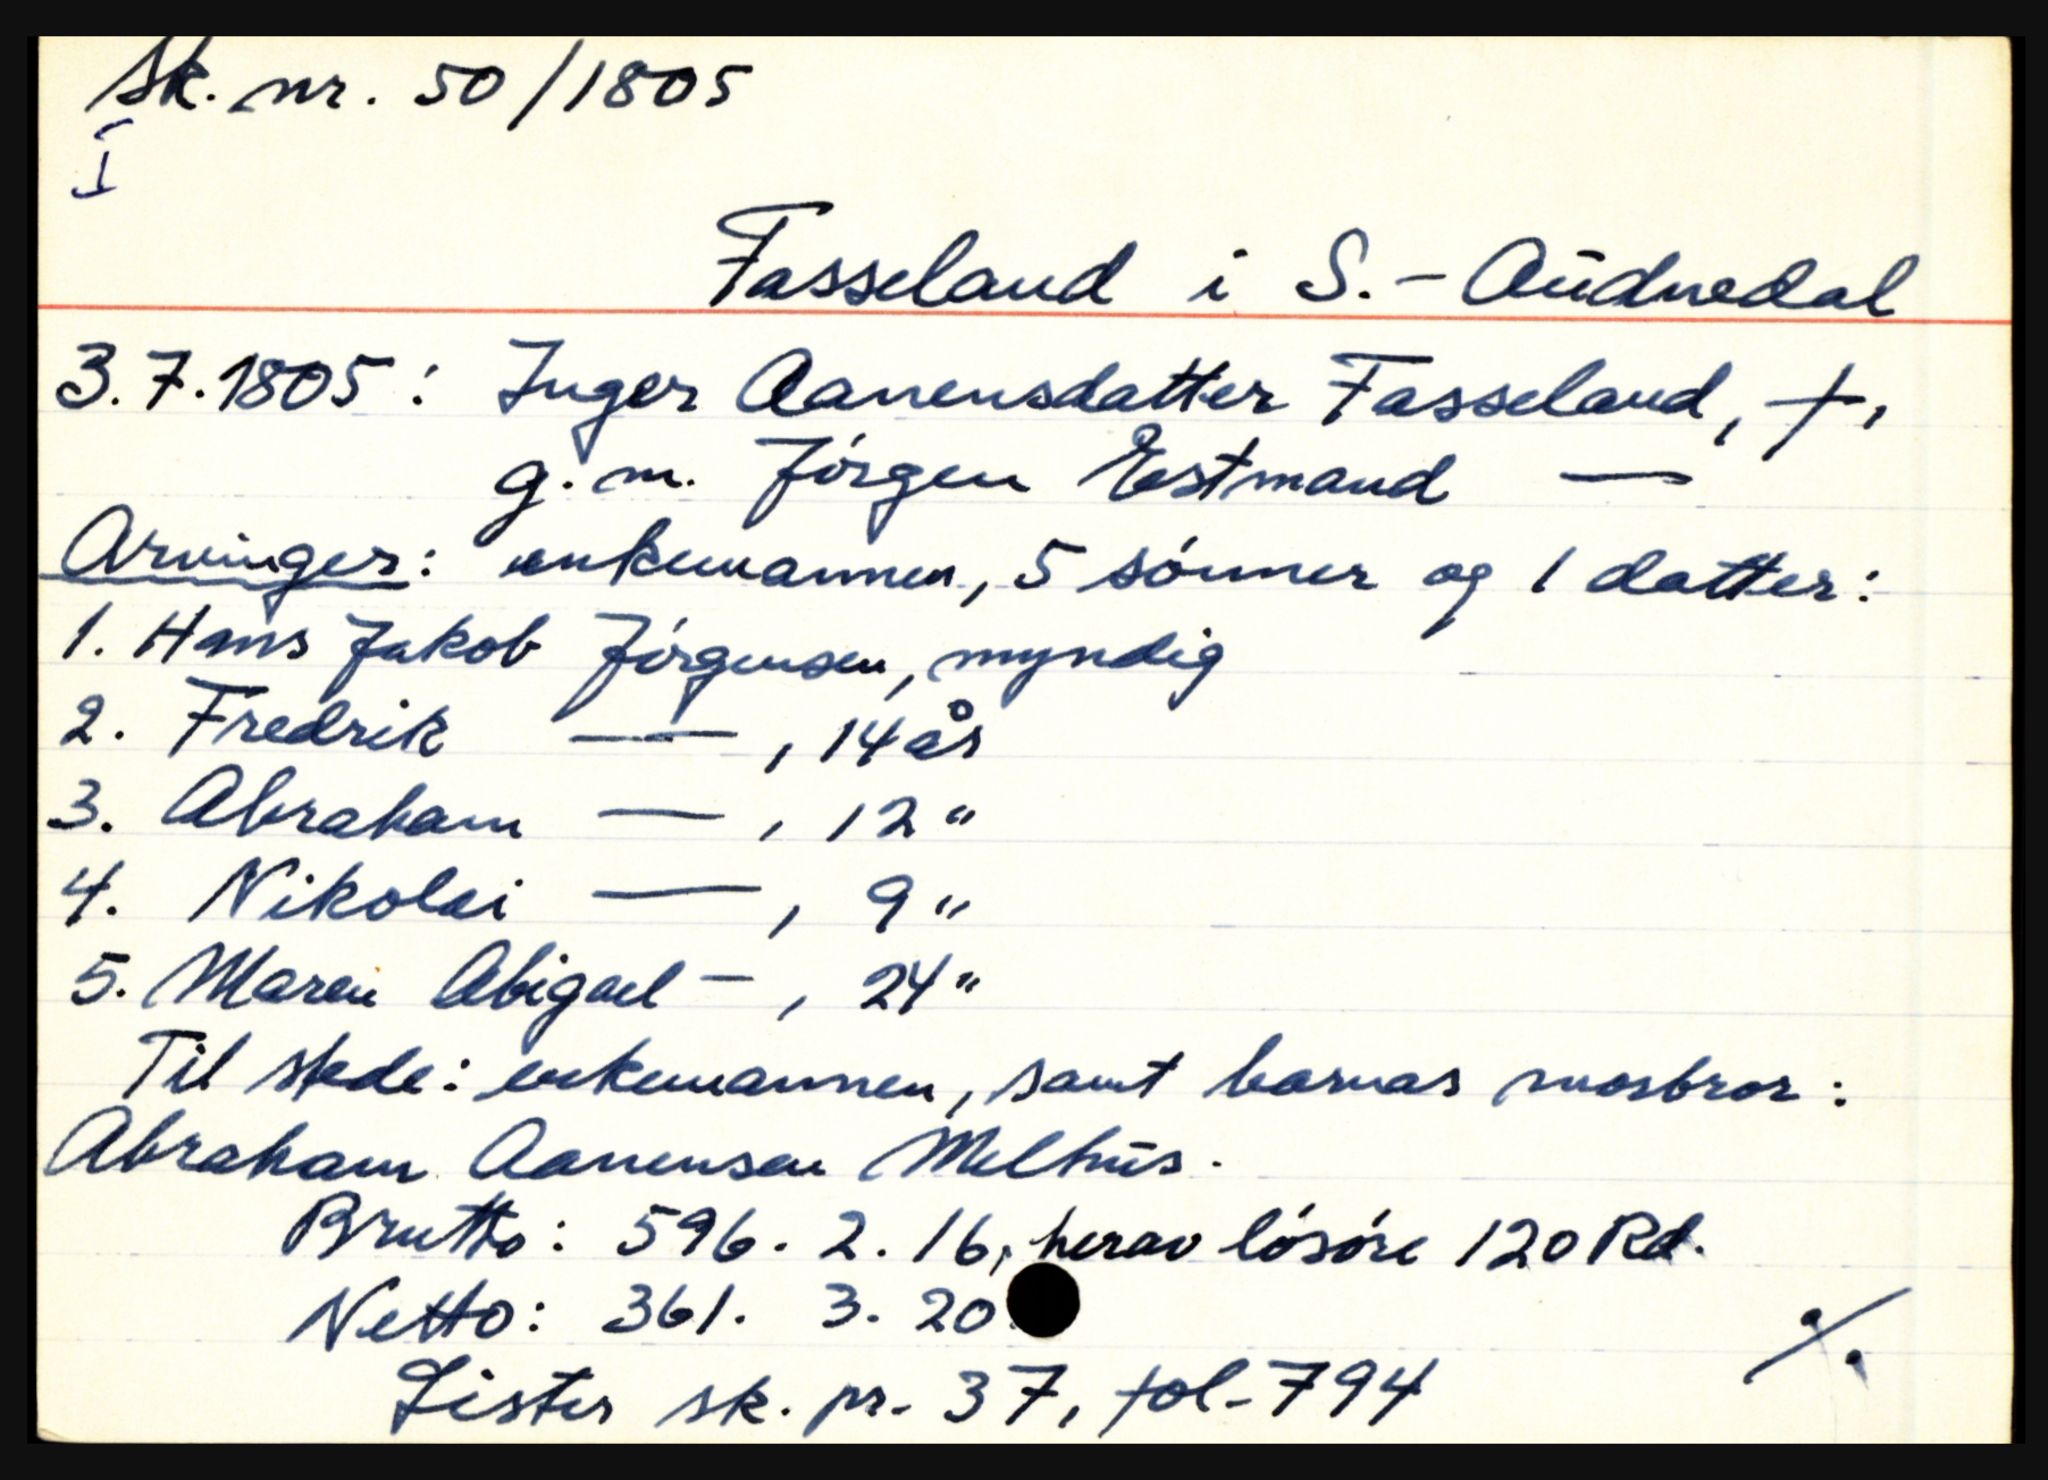 Sk. nr. 50/1805
I
Fasseland i S.-Audnedal
3.7.1805: Inger Aanensdatter Fasseland, †,
g. m. Jörgen Estmand —
Arvinger: enkemannen, 5 sönner og 1 datter:
1. Hans Jakob Jörgensen, myndig
2. Fredrik —"—, 14 år
3. Abraham —, 12 "
4. Nikolai —, 9 "
5. Maren Abigael —, 24 "
Til stede: enkemannen, samt barnas morbror:
Abraham Aanensen Melhus.
Brutto: 596. 2. 16, herav lösöre 120 Rd.
Netto: 361. 3. 20.
Lister sk. pr. 37, fol. 794
./.